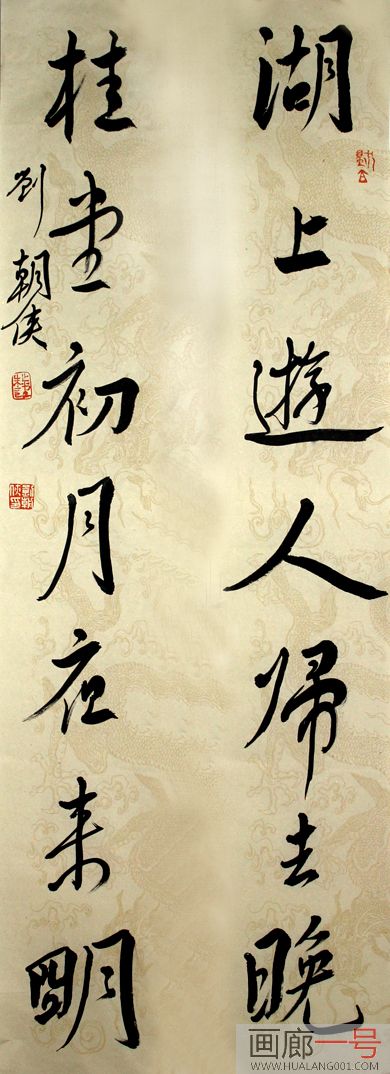 湖上遊人帰去晚
桂堂初月夜来明
劉朝侠
画廊一号
WWW.HUALANG001.COM